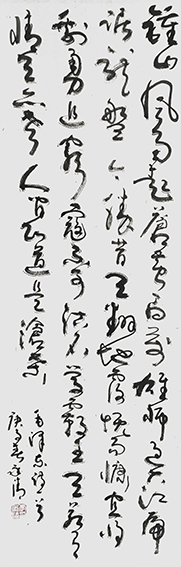 钟山风雨起苍黄百万雄师过大江虎
踞龙盘今胜昔天翻地覆慨而慷宜将
剩勇追穷寇不可沽名学霸王天若有
情天亦老人间正道是沧桑
毛泽东诗一首
庚